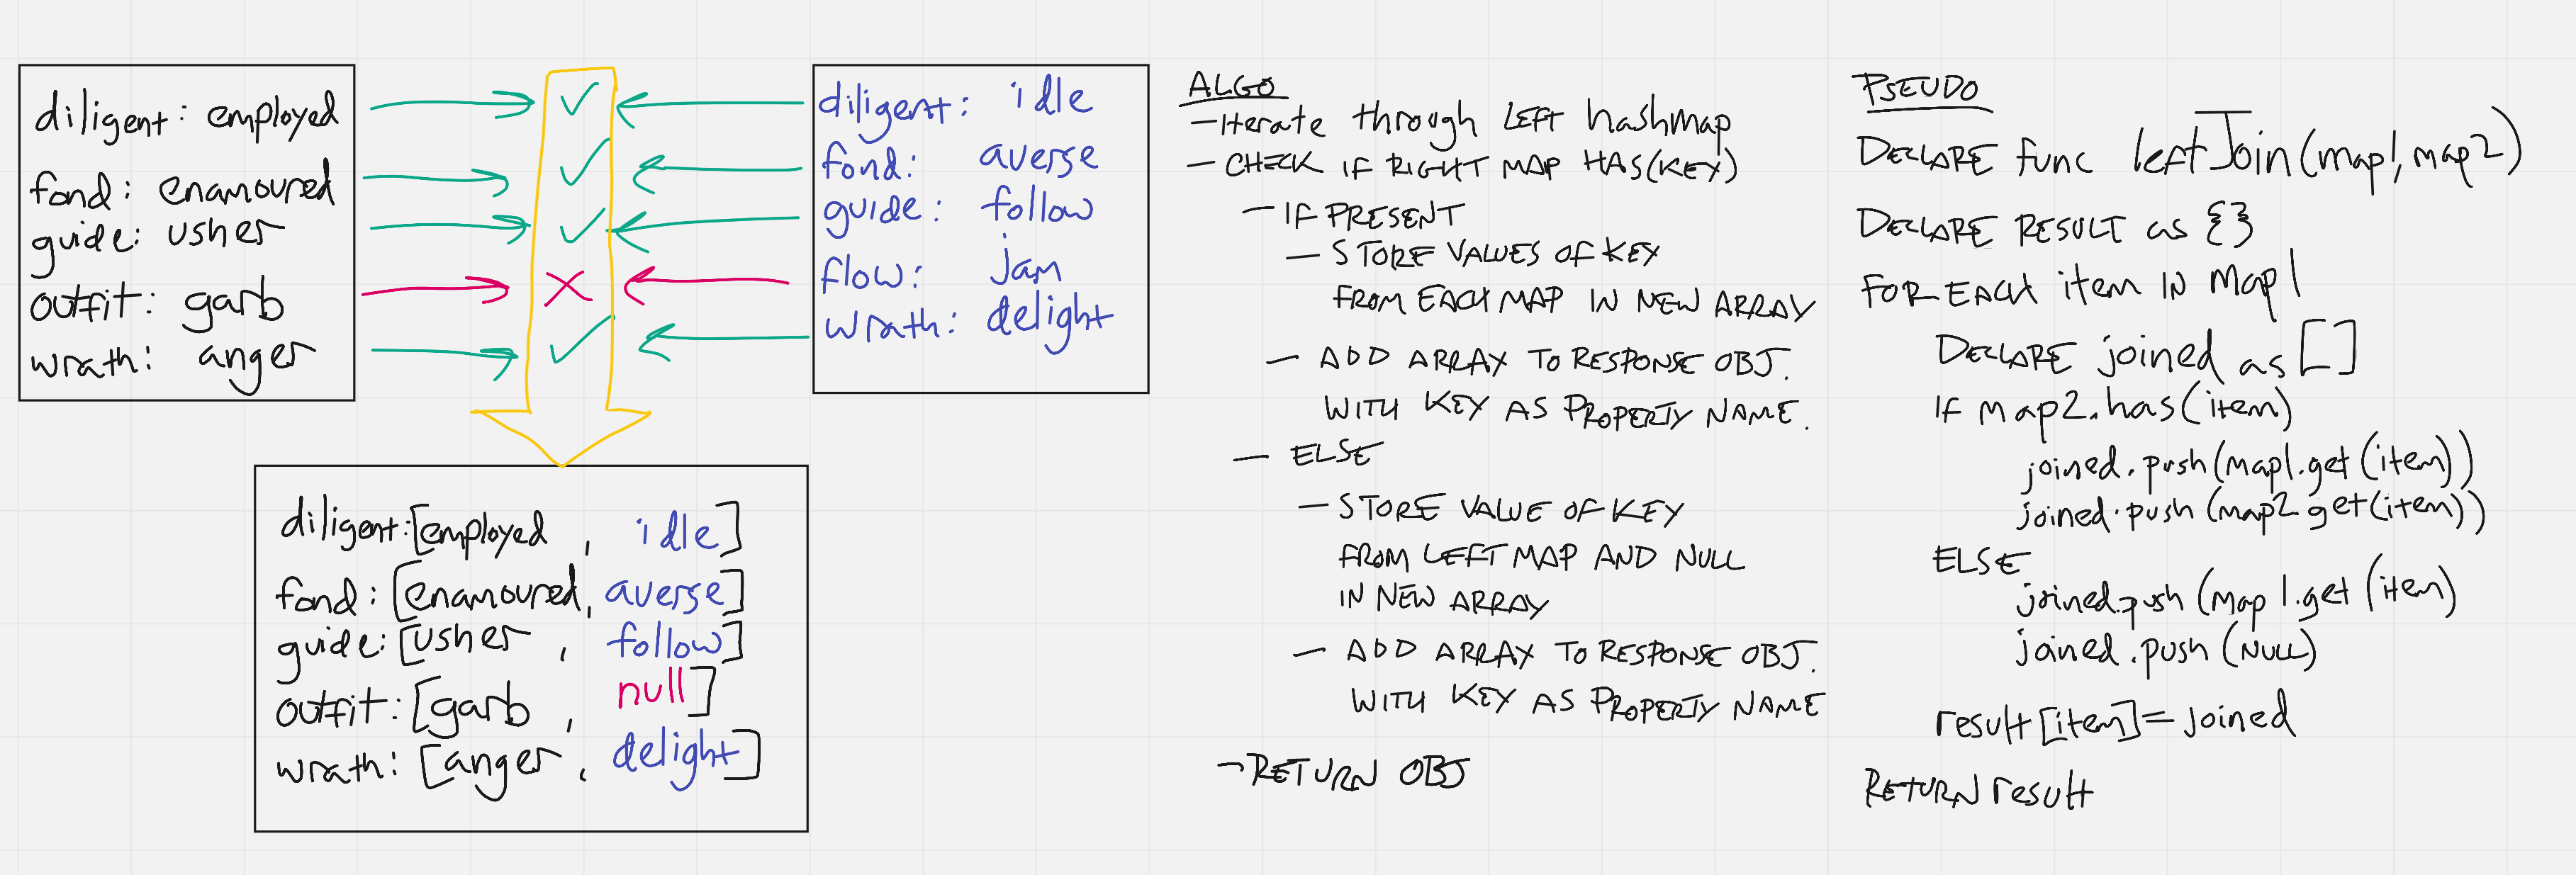 diligent: employed
fond: enamoured
guide: usher
outfit: garb
wrath: anger
diligent: idle
fond: averse
guide: follow
flow: jam
wrath: delight
diligent:[employed, idle]
fond: [enamoured, averse]
guide: [usher, follow]
outfit: [garb, null]
wrath: [anger, delight]
ALGO
- Iterate through LEFT hashmap
- CHECK IF RIGHT MAP HAS(KEY)
- IF PRESENT
- STORE VALUES OF KEY
FROM EACH MAP IN NEW ARRAY
- ADD ARRAY TO RESPONSE OBJ.
WITH KEY AS PROPERTY NAME.
- ELSE
- STORE VALUE OF KEY
FROM LEFT MAP AND NULL
IN NEW ARRAY
- ADD ARRAY TO RESPONSE OBJ.
WITH KEY AS PROPERTY NAME
- RETURN OBJ
PSEUDO
DECLARE func leftJoin(map1, map2)
DECLARE RESULT as {}
FOR EACH item IN Map1
DECLARE joined as []
IF map2.has(item)
joined.push(map1.get(item))
joined.push(map2 get(item))
ELSE
joined.push(map1.get(item)
joined.push(NULL)
result[item]=joined
RETURN result